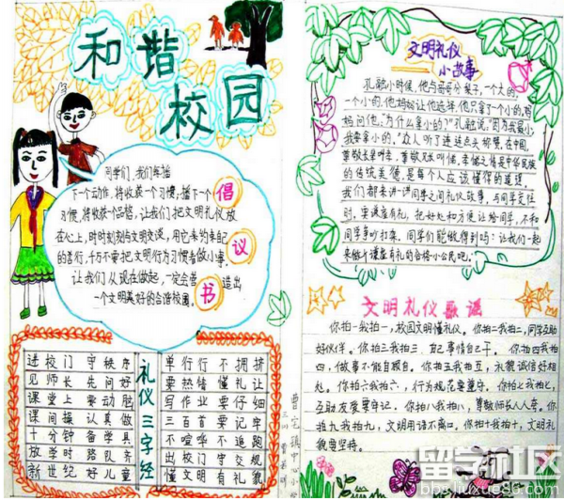 和谐
校园
同学们，我们每播
下一个动作，将收获一个习惯；播下一个
习惯，将收获一个品格，让我们把文明礼仪放
在心上，时时刻刻与文明交谈，用它来约束自己
的言行，千万不要把文明行为习惯看做小事。
让我们从现在做起，一定会营造出
一个文明美好的合谐校园。
倡
议
书
礼仪三字经
进校门 守秩序
见师长 先问好
课堂上 要动脑
课间操 认真做
十分钟 备学具
放学时 路队齐
新世纪 好儿童
单行行 不拥挤
要热情 懂礼让
写作业 要仔细
三百首 要记牢
不喧哗 不追跑
出校门 守交规
懂文明 有礼貌
文明礼仪
小故事
孔融小时候，他与哥哥分梨子，一个大的，
一个小的，他妈妈让他选择，他只拿了一个小的，妈
妈问他：为什么拿小的？”孔融说：“因为我最小，
我要拿小的。”众人听了连连点头称赞，在中国，
的传统美德，是每个人应该懂得的道理。
我们都来讲一讲同学之间礼仪故事，与同学交往
时，要谦虚有礼，把好处和方便让给同学，不和
同学争吵打架。同学们能做得到吗：让我们一起
来做个谦虚有礼的合格小公民吧。
文明礼仪歌谣
你拍一我拍一，校园文明懂礼仪。你拍二我拍二，同学互助
好伙伴。你拍三我拍三，自己事情自己干。你拍四我拍
四，做事不能自顾自。你拍五我拍五，礼貌诚信好相
处。你拍六我拍六，行为规范要遵守。你拍七我拍七，
互助友爱要牢记。你拍八我拍八，尊敬师长人人夸。你
拍九我拍九，文明用语不离口。你拍十我拍十，文明礼
貌要坚持。
留学社区
bbs.liuxue86.com